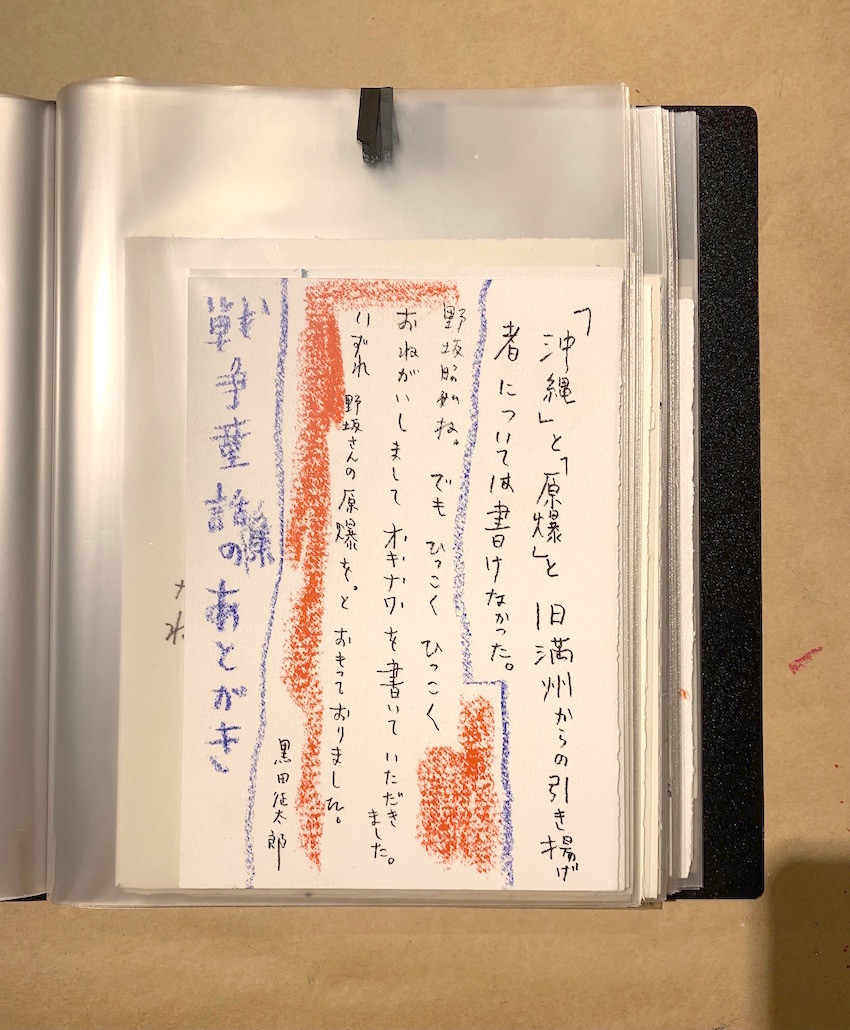 「沖縄」と「原爆」と 旧満州からの引き揚げ
者については書けなかった。
野坂昭如。 でも ひつこく ひつこく
おねがいしまして オキナワ を書いて いただき
ました。
いずれ 野坂さんの原爆を。と おもっておりました。
黒田征太郎
戦争童話のあとがき